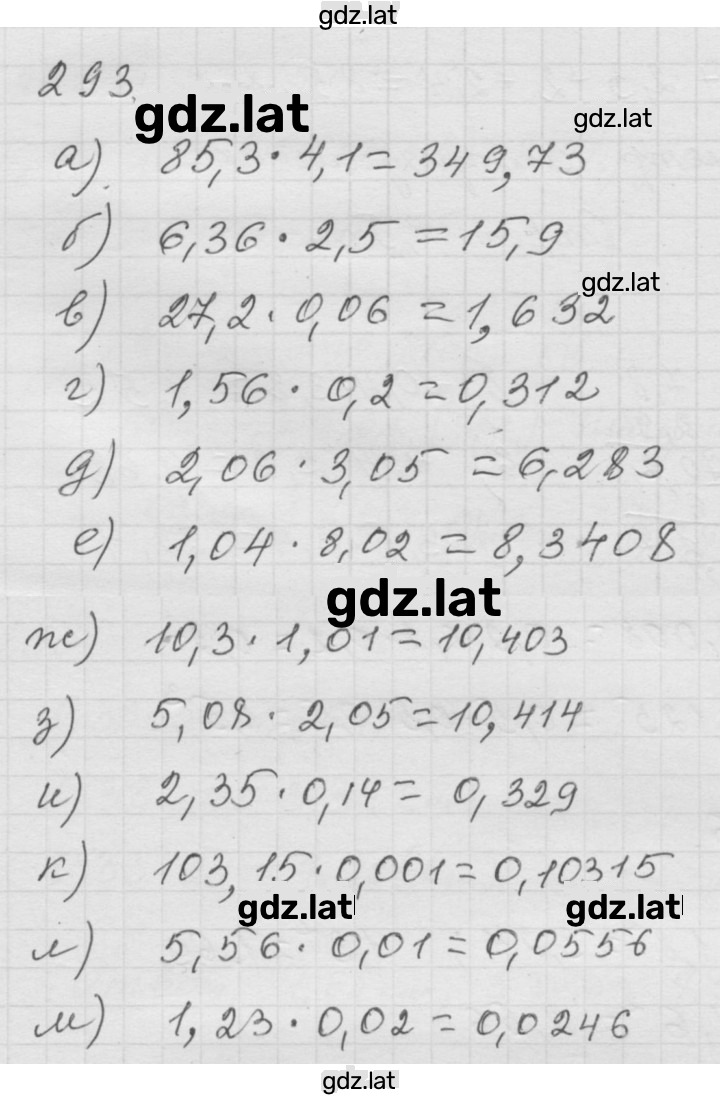 gdz.lat
293.
gdz.lat
gdz.lat
а) 85,3 · 4,1 = 349,73
б) 6,36 · 2,5 = 15,9
gdz.lat
в) 27,2 · 0,06 = 1,632
г) 1,56 · 0,2 = 0,312
д) 2,06 · 3,05 = 6,283
е) 1,04 · 8,02 = 8,3408
gdz.lat
ж) 10,3 · 1,01 = 10,403
з) 5,08 · 2,05 = 10,414
и) 2,35 · 0,14 = 0,329
к) 103,15 · 0,001 = 0,10315
gdz.lat
gdz.lat
л) 5,56 · 0,01 = 0,0556
м) 1,23 · 0,02 = 0,0246
gdz.lat